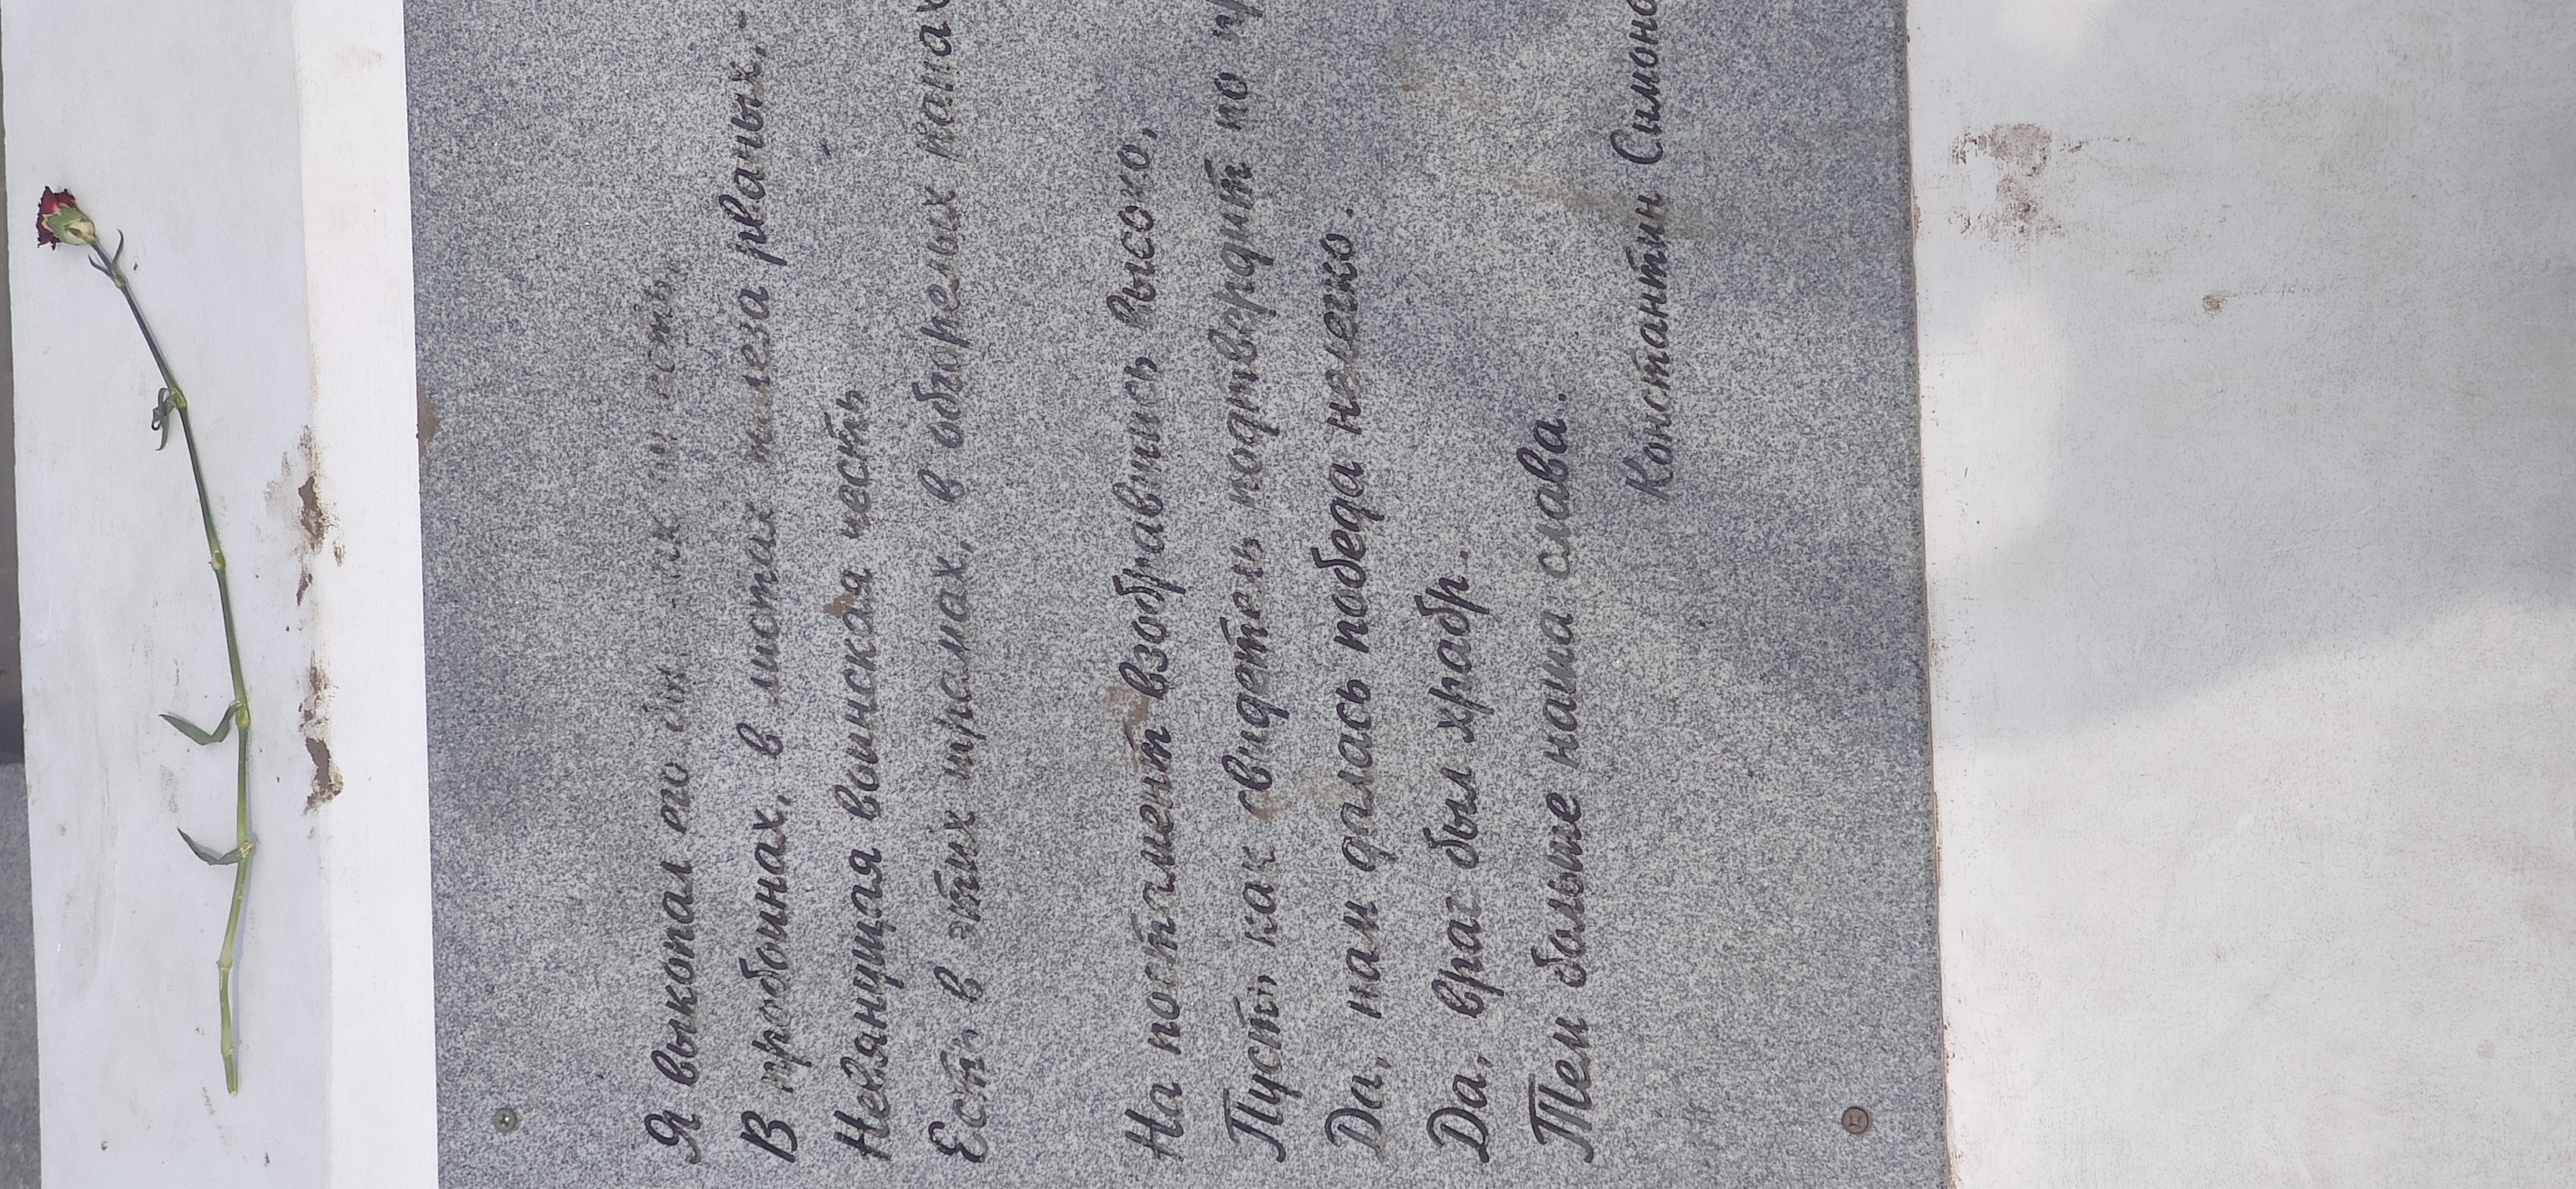 Я выкопал его бы - как он есть,
В пробоинах, в листах железа рваных,-
Невянущая воинская честь
Есть в этих шрамах, в обгорелых ранах
На постамент взобравшись высоко,
Пусть, как свидетель подтвердит по
Да, нам далась победа нелегко.
Да, враг был храбр.
Тем больше наша слава.
Константин Симоно